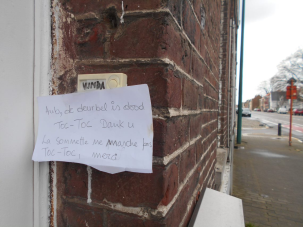 WANDA
Hallo, de deurbel is dood
Toc-Toc Dank u
La sonnette ne marche pas
Toc-Toc, merci